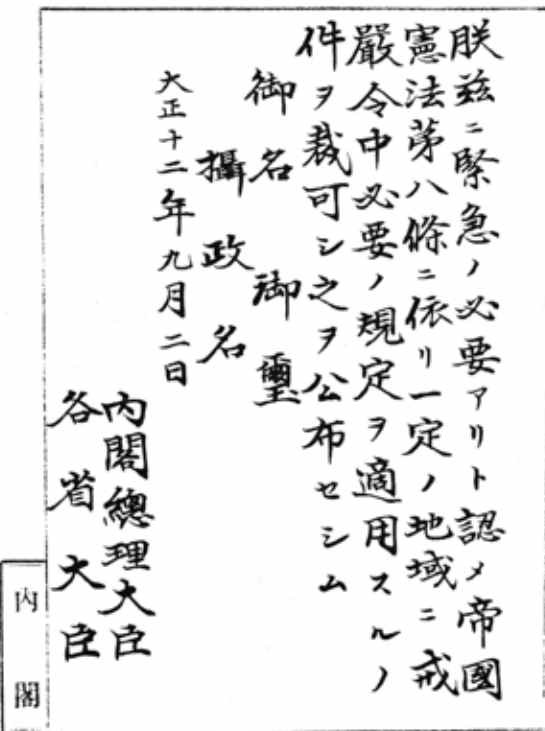 朕玆ニ緊急ノ必要アリト認メ帝國
憲法第八條ニ依リ一定ノ地域ニ戒
嚴令中必要ノ規定ヲ適用スルノ
件ヲ裁可シ之ヲ公布セシム
御名御璽
攝政名
大正十二年九月二日
內閣總理大臣
各省大臣
內閣